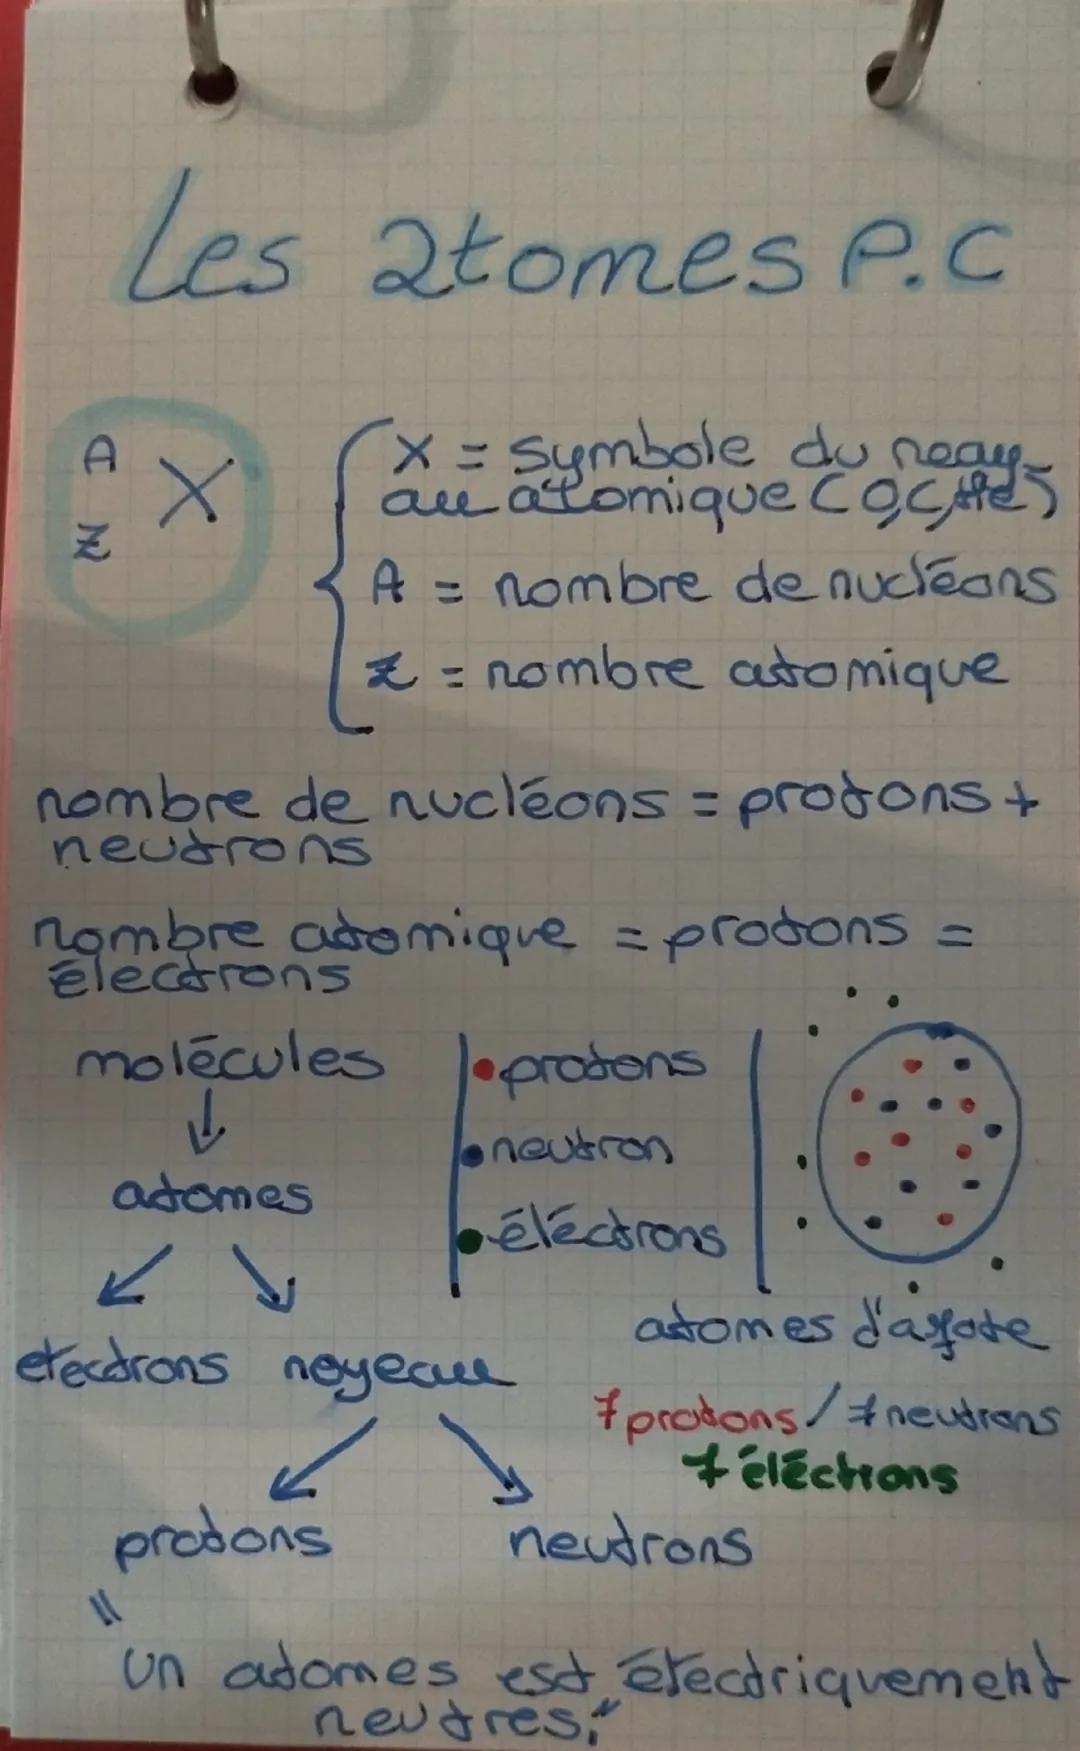 Les atomes P.C
A
Z
X
X = symbole du noay-
au atomique (O,C,He)
A = nombre de nucléons
Z = nombre atomique
nombre de nucléons = protons +
neutrons
nombre atomique = protons =
électrons
molécules
atomes
electrons noyeau
protons neutrons
protons
neutron
éléctrons
atomes d'azote
7 protons / 7 neutrons
7 éléctrons
"un atomes est électriquement
neutres."